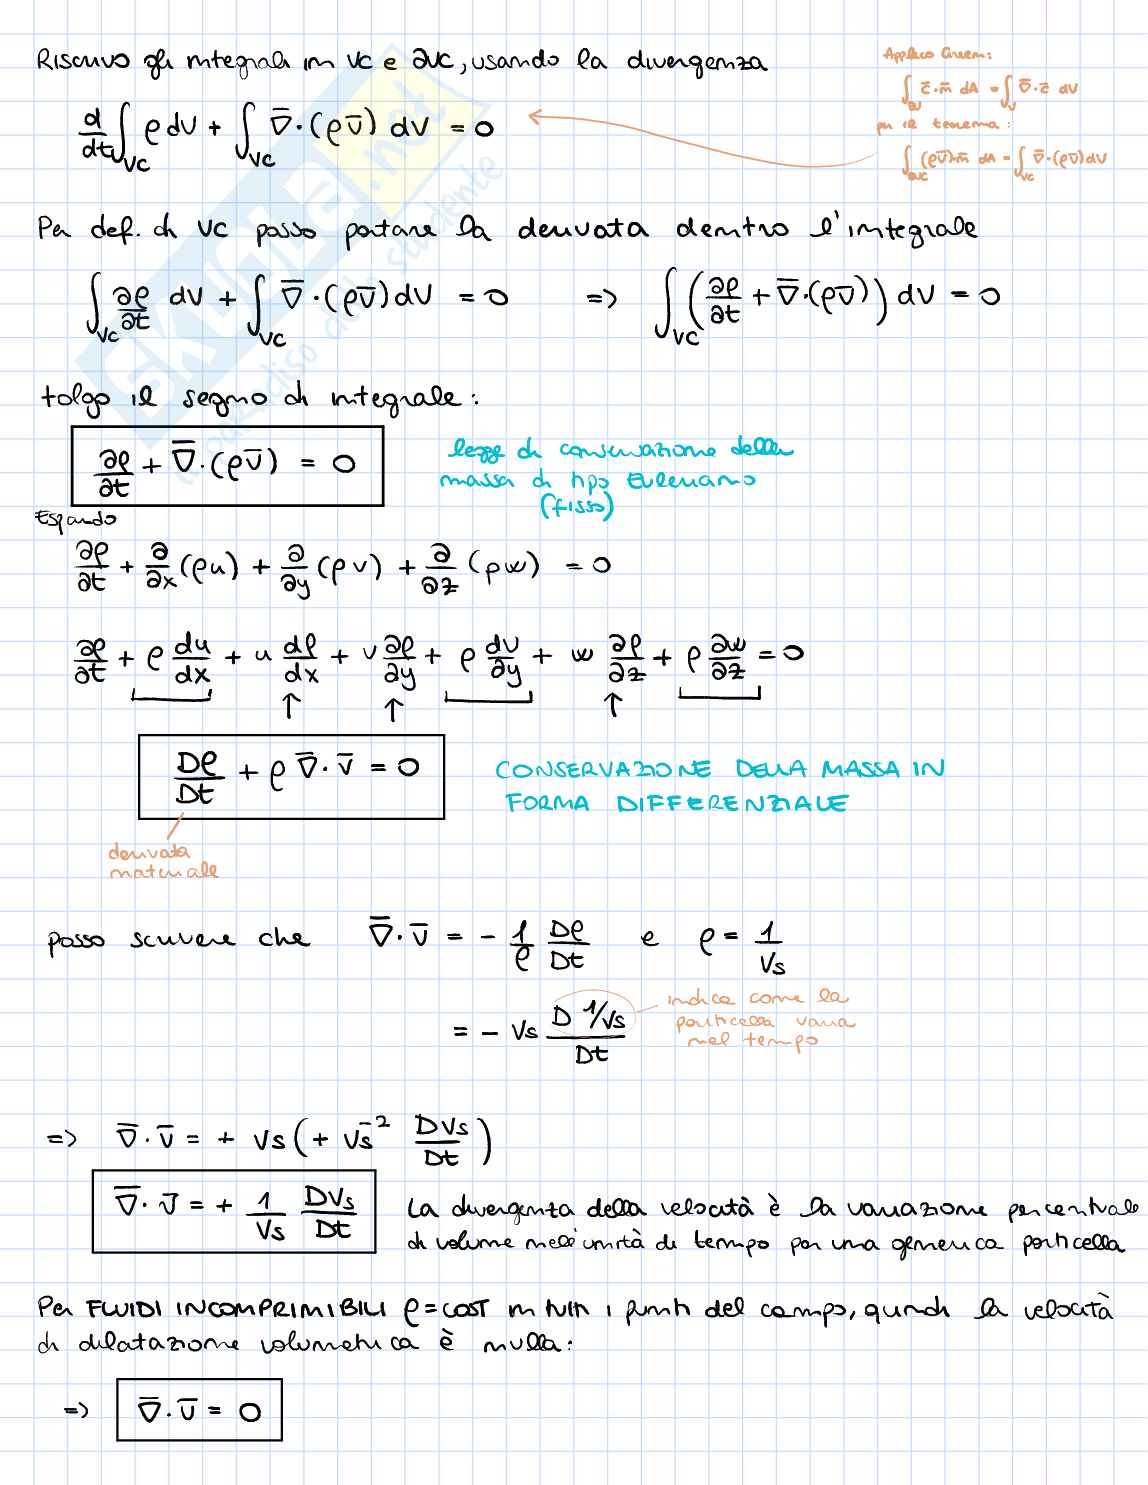 Riscrivo gli integrali in VC e ∂VC, usando la divergenza
Applico Green:
∫_∂V c̄·n̄ dA = ∫_V ∇̄·c̄ dV
per il teorema:
∫_∂VC (ρv̄)·n̄ dA = ∫_VC ∇̄·(ρv̄) dV
d/dt ∫_VC ρ dV + ∫_VC ∇̄·(ρv̄) dV = 0
Per def. di VC posso portare la derivata dentro l'integrale
∫_VC ∂ρ/∂t dV + ∫_VC ∇̄·(ρv̄) dV = 0 => ∫_VC (∂ρ/∂t + ∇̄·(ρv̄)) dV = 0
tolgo il segno di integrale:
∂ρ/∂t + ∇̄·(ρv̄) = 0
legge di conservazione della
massa di tipo Euleriano
(fisso)
Espando
∂ρ/∂t + ∂/∂x (ρu) + ∂/∂y (ρv) + ∂/∂z (ρw) = 0
∂ρ/∂t + ρ du/dx + u dρ/dx + v ∂ρ/∂y + ρ dv/∂y + w ∂ρ/∂z + ρ ∂w/∂z = 0
↑ ↑ ↑
Dρ/Dt + ρ ∇̄·v̄ = 0
CONSERVAZIONE DELLA MASSA IN
FORMA DIFFERENZIALE
derivata
materiale
posso scrivere che ∇̄·v̄ = - 1/ρ Dρ/Dt e ρ = 1/Vs
= - Vs D 1/Vs / Dt
indica come la
particella varia
nel tempo
=> ∇̄·v̄ = + Vs (+ Vs⁻² DVs/Dt)
∇̄·v̄ = + 1/Vs DVs/Dt
La divergenza della velocità è la variazione percentuale
di volume nell'unità di tempo per una generica particella
Per FLUIDI INCOMPRIMIBILI ρ=COST in tutti i punti del campo, quindi la velocità
di dilatazione volumetrica è nulla:
=> ∇̄·v̄ = 0
SKUOLA.net
il paradiso dello studente